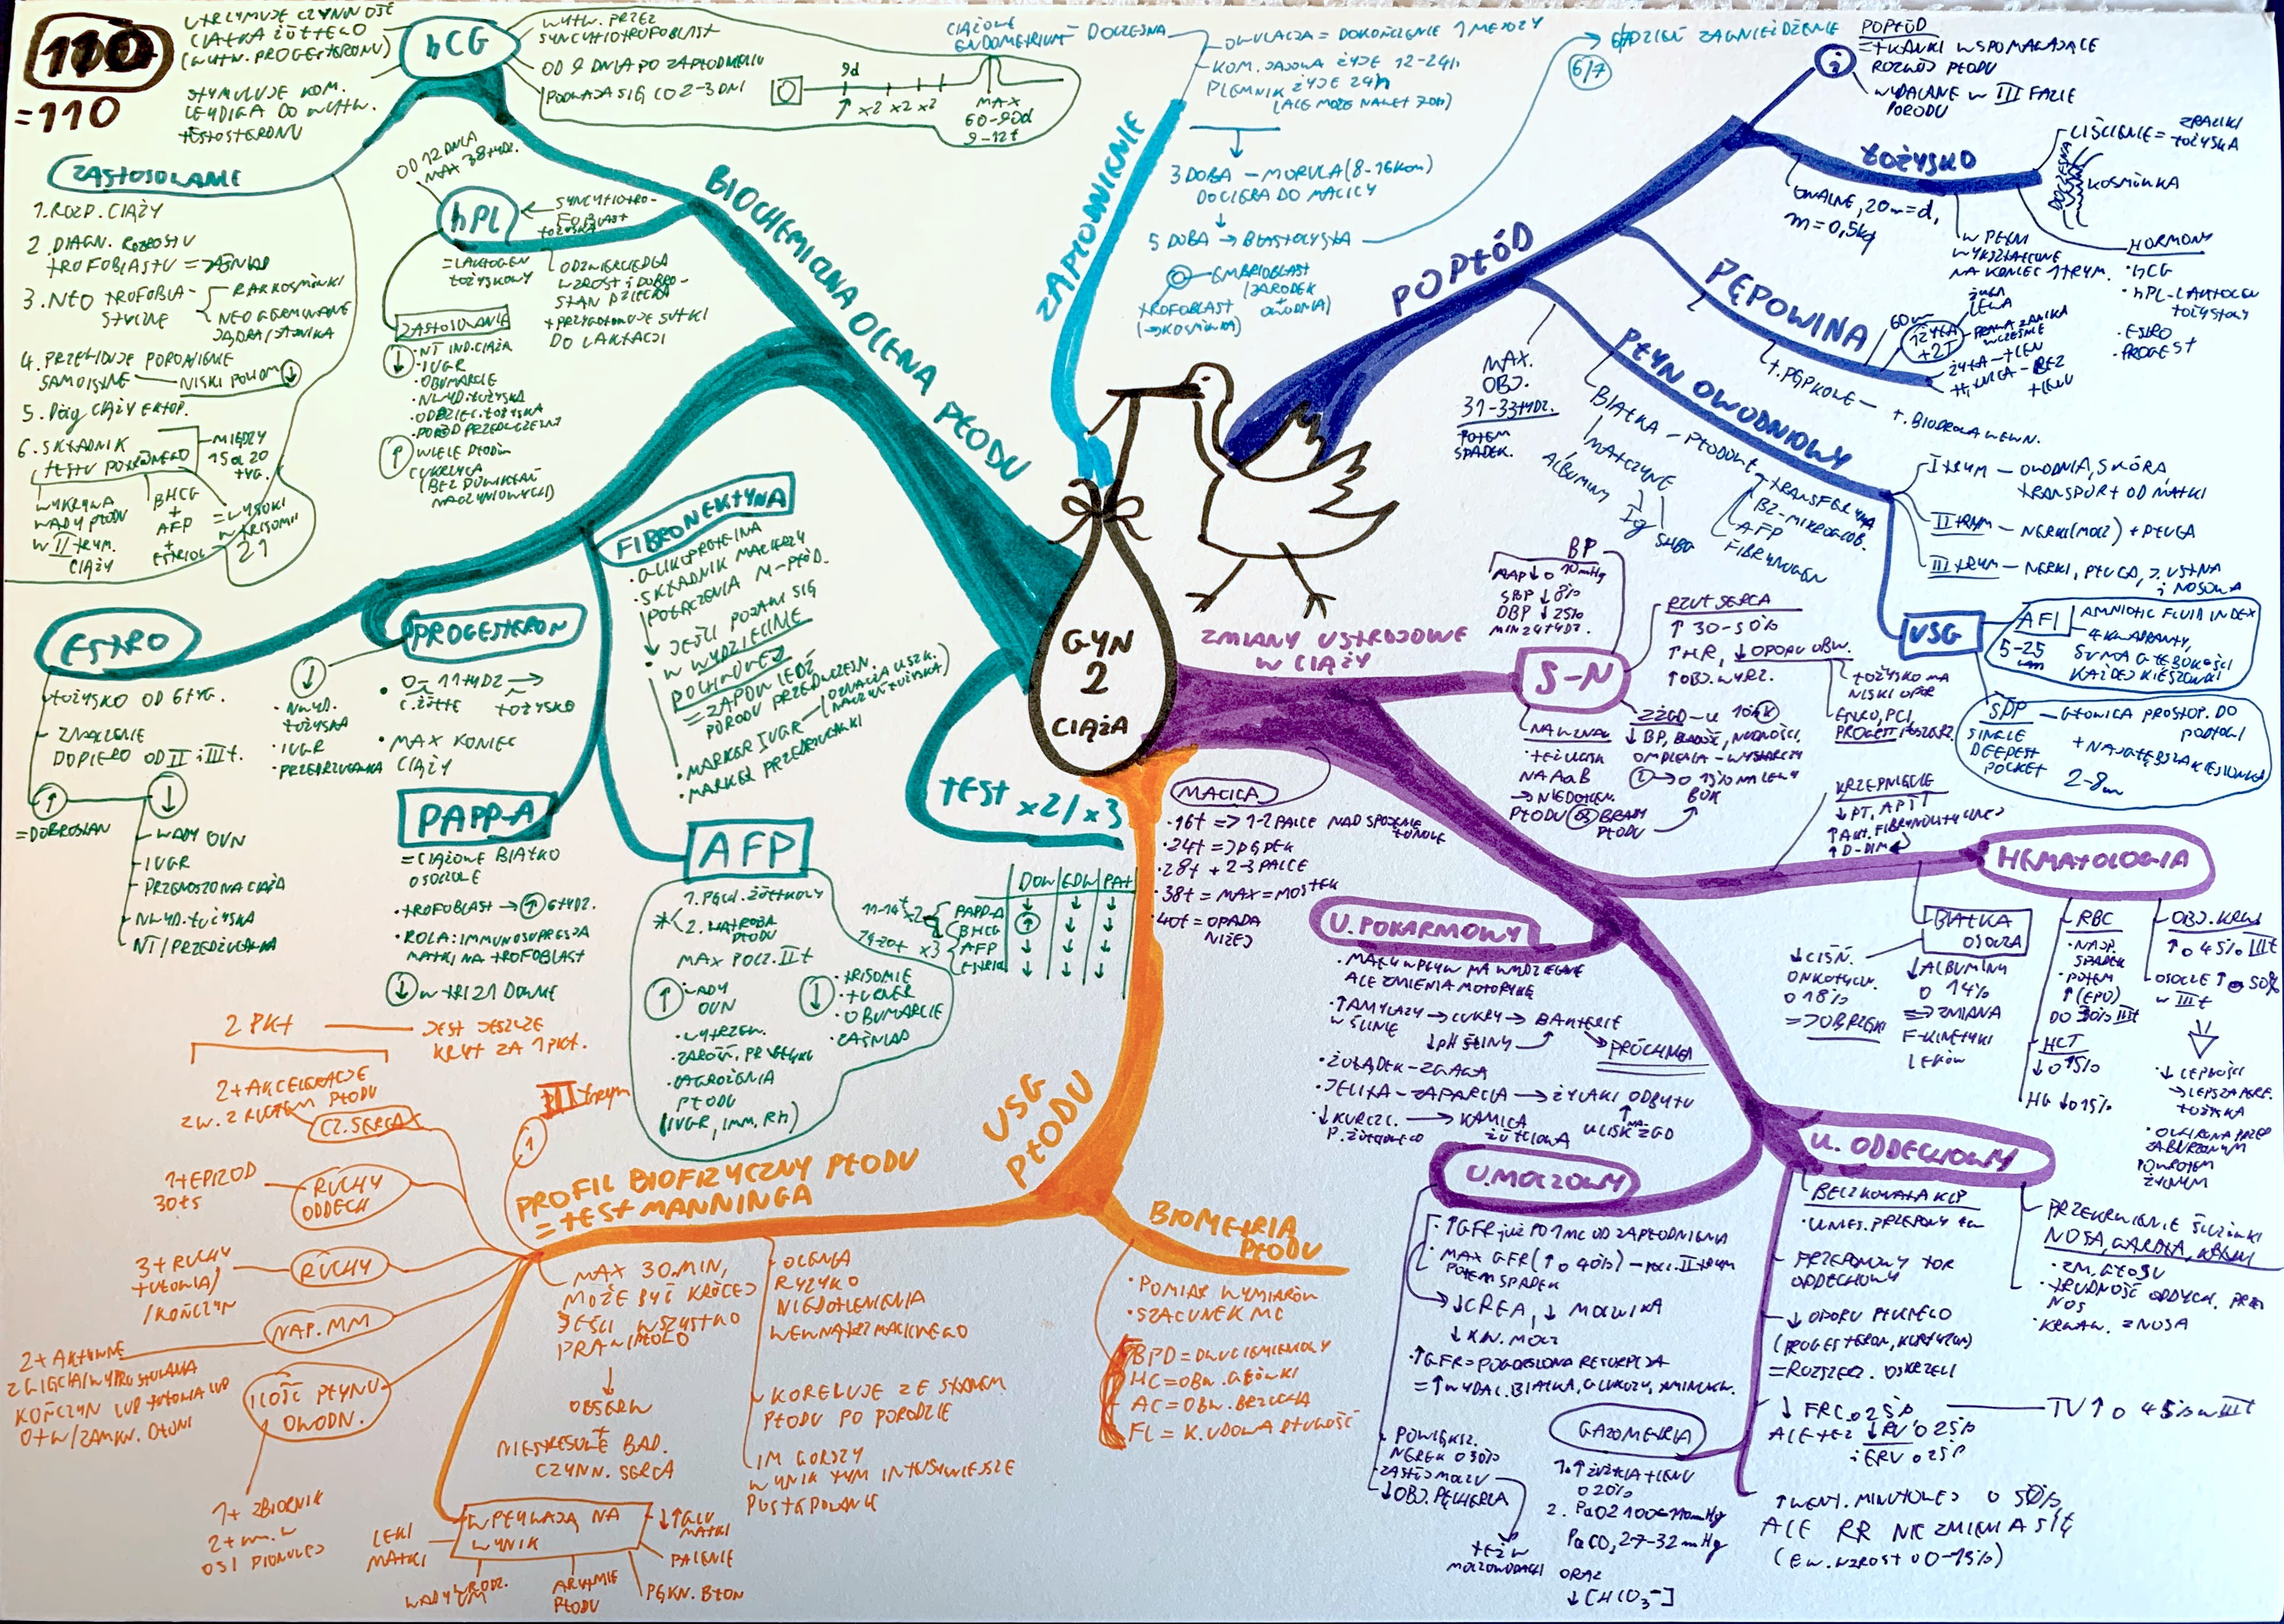 110
=110
UTRZYMUJE CZYNNOŚĆ
CIAŁKA ŻÓŁTEGO
(WYTW. PROGESTERONU)
STYMULUJE KOM.
LEYDIGA DO WYTW.
TESTOSTERONU
hCG
WYTW. PRZEZ
SYNCYTIOTROFOBLAST
OD 9 DNIA PO ZAPŁODNIENIU
PODWAJA SIĘ CO 2-3 DNI
9d
↑ x2 x2 x2
MAX
60-90d
9-12t
ZASTOSOWANIE
1. ROZP. CIĄŻY
2. DIAGN. ROZROSTU
TROFOBLASTU = ZAŚNIAD
3. NEO TROFOBLA-
STYCZNE
RAK KOSMÓWKI
NEO GERMINALNE
JĄDRA/JAJNIKA
4. PRZEWIDUJE PORONIENIE
SAMOISTNE — NISKI POZIOM ↓
5. DIAG CIĄŻY EKTOP.
6. SKŁADNIK
TESTU POTRÓJNEGO
MIĘDZY
15 a 20
TYG.
WYKRYWA
WADY PŁODU
W II TRYM.
CIĄŻY
BHCG
+
AFP
+
ESTRIOL
= WYSOKI
W TRISOMII
21
BIOCHEMICZNA OCENA PŁODU
OD 12 DNIA
MAX 38 TYDZ.
hPL
SYNCYTIOTRO-
FOBLAST
ŁOŻYSKA
= LAKTOGEN
ŁOŻYSKOWY
ODZWIERCIEDLA
WZROST I DOBRO-
STAN DZIECKA
+ PRZYGOTOWUJE SUTKI
DO LAKTACJI
ZASTOSOWANIA
↓
• NT IND. CIĄŻA
• IUGR
• OBUMARCIE
• NWYD. ŁOŻYSKA
• ODDZIEL. ŁOŻYSKA
• PORÓD PRZEDWCZESNY
↑
WIELE PŁODÓW
CUKRZYCA
(BEZ POWIKŁAŃ
NACZYNIOWYCH)
FIBRONEKTYNA
• GLIKOPROTEINA
• SKŁADNIK MACIERZY
POŁĄCZENIA M-PŁÓD.
• JEŚLI POJAWI SIĘ
W WYDZIELINIE
POCHWOWEJ
= ZAPOWIEDŹ
PORODU PRZEDWCZESN.
• MARKER IUGR — (OZNACZA USZK.
NACZYŃ ŁOŻYSKA)
• MARKER PRZEDRZUCAWKI
ESTRO
ŁOŻYSKO OD 6 TYG.
ZNACZENIE
DOPIERO OD II i III t.
↑
= DOBROSTAN
↓
WADY OUN
IUGR
PRZENOSZONA CIĄŻA
NWYD. ŁOŻYSKA
NT / PRZEDRZUCAWKA
PROGESTERON
↓
• NWYD.
ŁOŻYSKA
• IUGR
• PRZEDRZUCAWKA
• 0 — 11 TYDZ →
C. ŻÓŁTE ŁOŻYSKO
• MAX KONIEC
CIĄŻY
PAPP-A
= CIĄŻOWE BIAŁKO
OSOCZOWE
• TROFOBLAST → ↑ 6 TYDZ.
• ROLA: IMMUNOSUPRESJA
MATKI NA TROFOBLAST
↓ W TRI 21 DOWNIE
AFP
1. PĘCH. ŻÓŁTKOWY
2. WĄTROBA
PŁODU
MAX POCZ. II t
↑
WADY
OUN
• WYTRZEW.
• ZAROŚN. PRZEŁYKU
• ZAGROŻENIA
PŁODU
(IUGR, IMM, RH)
↓
• TRISOMIE
• TURNER
• OBUMARCIE
• ZAŚNIAD
TEST x2 / x3
DOW EDW PAT
11-14t x2 PAPP-A ↓ ↓ ↓
BHCG ↑ ↓ ↓
x3 AFP ↓ ↓ ↓
ESTRIOL ↓ ↓ ↓
GYN
2
CIĄŻA
ZAPŁODNIENIE
CIĄŻOWE
ENDOMETRIUM = DOCZESNA
OWULACJA = DOKOŃCZENIE 1 MEJOZY
KOM. JAJOWA ŻYJE 12-24h
PLEMNIK ŻYJE 24h
(ALE MOŻE NAWET 70h)
3 DOBA — MORULA (8-16 KOM)
DOCIERA DO MACICY
5 DOBA → BLASTOCYSTA
EMBRIOBLAST
(ZARODEK
OWODNIA)
TROFOBLAST
(→ KOSMÓWKA)
6/7
DZIEŃ ZAGNIEŻDŻENIE
POPŁÓD
i
POPŁÓD
= TKANKI WSPOMAGAJĄCE
ROZWÓJ PŁODU
WYDALANE W III FAZIE
PORODU
ŁOŻYSKO
OWALNE, 20cm = d,
m = 0,5kg
LIŚCIENIE = ZRAZIKI
ŁOŻYSKA
DOCZESNA
KOSMÓWKA
W PEŁNI
WYKSZTAŁCONE
NA KONIEC 1 TRYM.
HORMONY
• hCG
• hPL - LAKTOGEN
ŁOŻYSKOWY
• ESTRO
• PROGEST
PĘPOWINA
60cm
1 ŻYŁA
+ 2 T
ŻYŁA
LEWA
PRAWA ZANIKA
WCZEŚNIE
ŻYŁA — TLEN
TĘTNICA - BEZ
TLENU
t. PĘPKOWE — t. BIODROWA WEWN.
PŁYN OWODNIOWY
MAX.
OBJ.
31-33 TYDZ.
POTEM
SPADEK.
BIAŁKA — PŁODOWE
MATCZYNE
ALBUMINY
Ig
SHBG
TRANSFERYNA
B2-MIKROGLOB.
AFP
FIBRYNOGEN
I TRYM — OWODNIA, SKÓRA,
TRANSPORT OD MATKI
II TRYM — NERKI (MOCZ) + PŁUCA
III TRYM — NERKI, PŁUCA, J. USTNA
i NOSOWA
USG
AFI AMNIOTIC FLUID INDEX
4 KWADRANTY,
SUMA GŁĘBOKOŚCI
KAŻDEJ KIESZONKI
5-25
cm
SDP — GŁOWICA PROSTOP. DO
PODŁOGI
SINGLE
DEEPEST
POCKET
+ NAJGŁĘBSZA KIESZONKA
2-8cm
ZMIANY USTROJOWE
W CIĄŻY
S-N
BP
MAP ↓ o 10mmHg
SBP ↓ 8%
DBP ↓ 25%
MIN 24 TYDZ.
RZUT SERCA
↑ 30-50%
↑ HR, ↓ OPORU OBW.
↑ OBJ. WYRZ.
ŁOŻYSKO MA
NISKI OPÓR
ENDO, PCI,
PROGEST. ROZSZERZ.
NA
TEŻ UCISK
NA AoB
→ NIEDOTLEN.
PŁODU
ZŻGD - U 10%K
↓ BP, BLADOŚĆ, NUDNOŚCI,
OMDLENIA - WYSTARCZY
o 15% NA LEWY
BOK
MACICA
• 16t => 1-2 PALCE NAD SPOJENIE
ŁONOWE
• 24t => PĘPEK
• 28t + 2-3 PALCE
• 38t = MAX = MOSTEK
• 40t = OPADA
NIŻEJ
HEMATOLOGIA
KRZEPNIĘCIE
↓ PT, APTT
↑ AKT. FIBRYNOLITYCZNEJ
↑ D-DIM
BIAŁKA
OSOCZA
↓ CIŚN.
ONKOTYCZN.
o 18%
=> OBRZĘKI
↓ ALBUMINY
o 14%
=> ZMIANA
F-KINETYKI
LEKÓW
RBC
• NAJP.
SPADEK
• POTEM
↑ (EPO)
DO 30% III t
HCT
↓ o 15%
HG ↓ o 15%
OBJ. KRWI
↑ o 45% III t
OSOCZE ↑ o 50%
W III t
• ↓ LEPKOŚCI
→ LEPSZA PERF.
ŁOŻYSKA
• OCHRONA PRZED
ZABURZONYM
POWROTEM
ŻYLNYM
U. POKARMOWY
• MAŁY WPŁYW NA WYDZIELANIE
ALE ZMIENIA MOTORYKĘ
• ↑ AMYLAZY → CUKRY → BAKTERIE
W ŚLINIE
↓ pH ŚLINY
PRÓCHNICA
• ŻOŁĄDEK - ZGAGA
• JELITA - ZAPARCIA → ŻYLAKI ODBYTU
UCISK NA ŻGD
• ↓ KURCZL. → KAMICA
P. ŻÓŁCIOWEGO ŻÓŁCIOWA
U. MOCZOWY
• ↑ GFR już PO 1 MC OD ZAPŁODNIENIA
• MAX GFR (↑ o 40%) — POCZ. II TRYM
POTEM SPADEK
↓ CREA, ↓ MOCZNIKA
↓ KW. MOCZ
• ↑ GFR = POGORSZONA RESORPCJA
= ↑ WYDAL. BIAŁKA, GLUKOZY, AMINOKW.
• POWIĘKSZ.
NEREK o 30%
• ZASTÓJ MOCZU
↓ OBJ. PĘCHERZA
TEŻ W
MOCZOWODACH
U. ODDECHOWY
BECZKOWATA KLP
• UNIES. PRZEPONY
PRZEPONOWY TOR
ODDECHOWY
↓ OPORU PŁUCNEGO
(PROGESTERON, KORTYZOL)
= ROZSZERZ. OSKRZELI
↓ FRC o 25% — TV ↑ o 45% w III t
ALE TEŻ ↓ RV o 25%
i ERV o 25%
↑ WENT. MINUTOWEJ o 50%,
ALE RR NIE ZMIENIA SIĘ
(EW. WZROST o 0-15%)
PRZEKRWIENIE ŚLUZÓWKI
NOSA, GARDŁA, KRTANI
• ZM. GŁOSU
• TRUDNOŚĆ ODDYCH. PRZEZ
NOS
• KRWAW. Z NOSA
GAZOMETRIA
1. ↑ ZUŻYCIA TLENU
o 20%
2. PaO2 100-110mmHg
PaCO2 27-32mmHg
ORAZ
↓ [HCO3-]
USG
PŁODU
BIOMETRIA
PŁODU
• POMIAR WYMIARÓW
• SZACUNEK MC
BPD = DWUCIEMIENIOWY
HC = OBW. GŁÓWKI
AC = OBW. BRZUCHA
FL = K. UDOWA DŁUGOŚĆ
PROFIL BIOFIZYCZNY PŁODU
= TEST MANNINGA
III trym
1
2 PKT — JEST JESZCZE
KRYT ZA 1 PKT.
2+ AKCELERACJE
ZW. Z RUCHEM PŁODU
CZ. SERCA
1+ EPIZOD
30+s
RUCHY
ODDECH
3+ RUCHY
TUŁOWIA/
/KOŃCZYN
RUCHY
NAP. MM
2+ AKTYWNE
ZGIĘCIA/WYPROSTOWANIA
KOŃCZYN LUB TUŁOWIA LUB
OTW/ZAMKN. DŁONI
ILOŚĆ PŁYNU
OWODN.
1+ ZBIORNIK
2+ cm. w
OSI PIONOWEJ
MAX 30 MIN,
MOŻE BYĆ KRÓCEJ
JEŚLI WSZYSTKO
PRAWIDŁOWO
↓
OBSERW
+
NIESTRESOWE BAD.
CZYNN. SERCA
OCENIA
RYZYKO
NIEDOTLENIENIA
WEWNĄTRZMACICZNEGO
KORELUJE ZE STANEM
PŁODU PO PORODZIE
IM GORSZY
WYNIK TYM INTENSYWNIEJSZE
POSTĘPOWANIE
WPŁYWAJĄ NA
WYNIK
LEKI
MATKI
WADY WRODZ.
ARYTMIE
PŁODU
PĘKN. BŁON
PALENIE
↓↑ GLU
MATKI